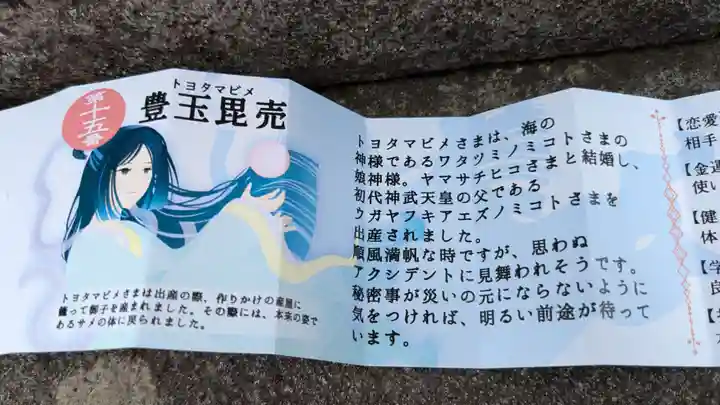 第十五番
トヨタマビメ
豊玉毘売
トヨタマビメさまは出産の際、作りかけの産屋に
籠って御子を産まれました。その際には、本来の姿で
あるサメの体に戻られました。
トヨタマビメさまは、海の
神様であるワタツミノミコトさまの
娘神様。ヤマサチヒコさまと結婚し、
初代神武天皇の父である
ウガヤフキアエズノミコトさまを
出産されました。
順風満帆な時ですが、思わぬ
アクシデントに見舞われそうです。
秘密事が災いの元にならないように
気をつければ、明るい前途が待って
います。
【恋愛
相手
【金運
使い
【健
体
【学
良